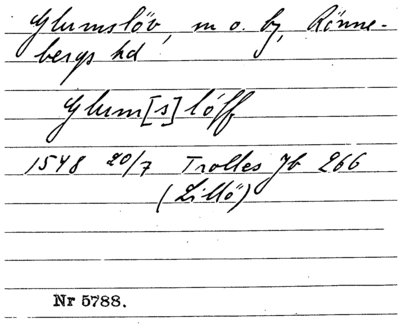 Glumslöv, m o. by, Rönne-
bergs hd
Glum[s]löff
1548 20/7 Trolles Jb 266
(Lillö)
Nr 5788.